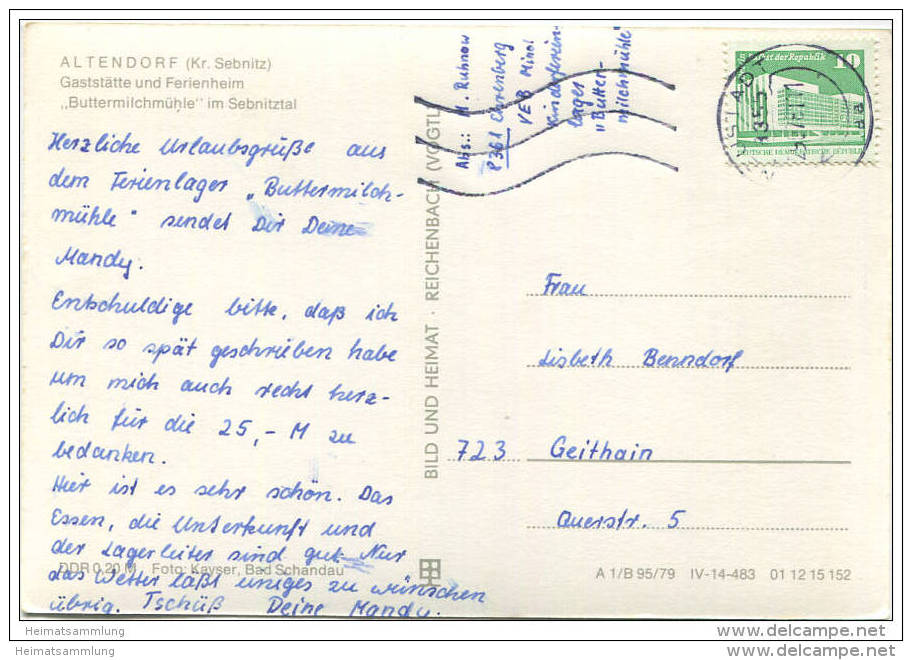 ALTENDORF (Kr. Sebnitz)
Gaststätte und Ferienheim
„Buttermilchmühle" im Sebnitztal
Herzliche Urlaubsgrüße aus
dem Ferienlager „Buttermilch-
mühle" sendet Dir Deine
Mandy.
Entschuldige bitte, daß ich
Dir so spät geschrieben habe
um mich auch recht herz-
lich für die 25,- M zu
bedanken.
Hier ist es sehr schön. Das
Essen, die Unterkunft und
der Lagerleiter sind gut. Nur
das Wetter läßt einiges zu wünschen
übrig. Tschüß Deine Mandy.
DDR 0,20 M Foto: Kayser, Bad Schandau
BILD UND HEIMAT · REICHENBACH (VOGTL
Abs.: M. Ruhnow
8361 Ehrenberg
VEB Minol
Kinderferien-
lager
„Butter-
milchmühle"
10
der Republik
DEUTSCHE DEMOKRATISCHE REPUBLIK
Frau
Lisbeth Benndorf
723 Geithain
Querstr. 5
A 1/B 95/79 IV-14-483 01 12 15 152
Heimatsammlung
Heimatsammlung
www.delcampe.net
www.delcampe.net